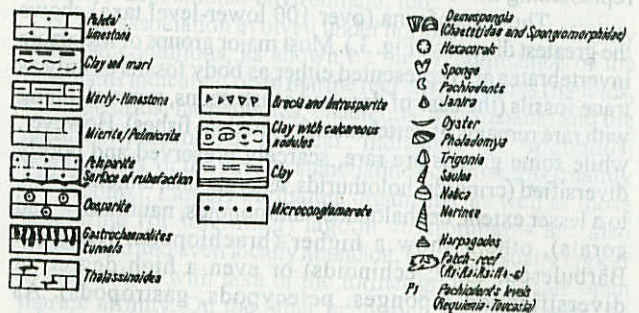 Peleta/
limestone
Clay and marl
Marly-limestone
Micrite/Pelmicrite
Pelsparite
Surface of rubefaction
Oosparite
Gastrochaenolites
tunnels
Thalassinoidea
Breccia and Intrasparite
Clay with calcareous
nodules
Clay
Microconglomerate
Demospongia
(Chaetetidae and Spongiomorphidae)
Hexacorals
Sponge
Pachiodonts
Janira
Oyster
Pholadomya
Trigonia
Sauba
Natica
Nerinea
Harpagodes
Patch-reef
P1 Pachiodonts levels
(Requienia-Toucasia)